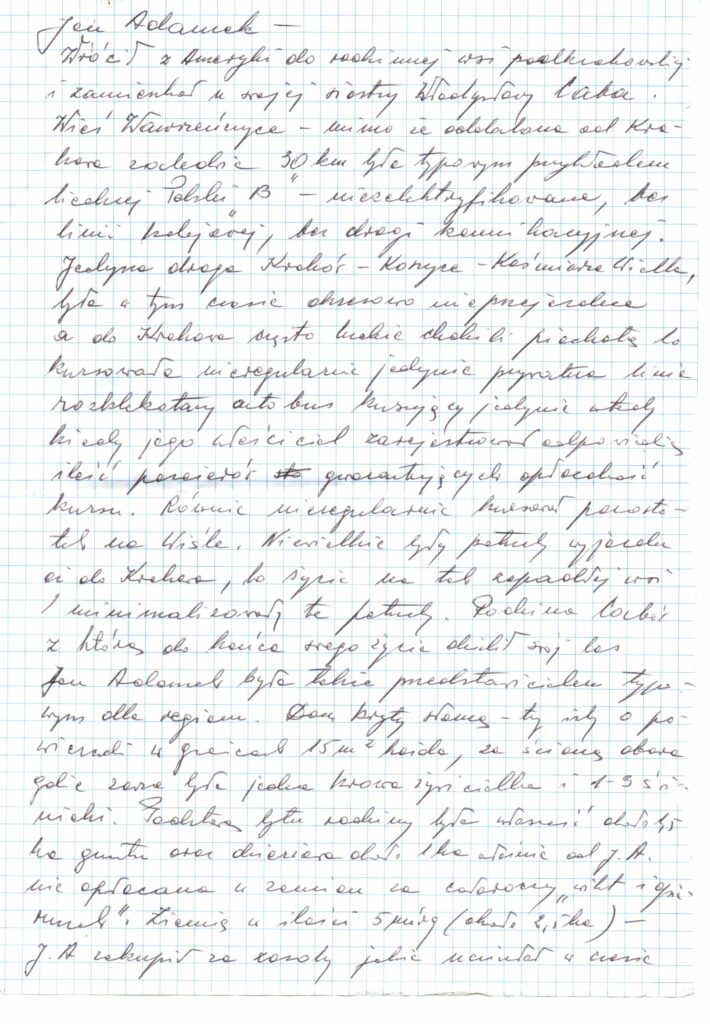 Jan Adamek —
Wrócił z Ameryki do rodzinnej wsi podkrakowskiej
i zamieszkał u swojej siostry Władysławy Caba.
Wieś Wawrzeńczyce – mimo że oddalona od Kra-
kowa zaledwie 30 km była typowym przykładem
biednej Polski "B" – niezelektryfikowana, bez
linii kolejowej, bez drogi komunikacyjnej.
Jedyna droga Kraków – Koszyce – Kaźmierza Wielka,
była w tym czasie okresowo nieprzejezdna
a do Krakowa często ludzie chodzili piechotą bo
kursowała nieregularnie jedynie prywatna linia
rozklekotany autobus kursujący jedynie wtedy
kiedy jego właściciel zarejestrował odpowiednią
ilość pasażerów gwarantujących opłacalność
kursu. Równie nieregularnie kursował parosta-
tek na Wiśle. Niewielkie były potrzeby wyjazdu
do Krakowa, bo życie na tak zapadłej wsi
minimalizowały te potrzeby. Rodzina Cabów
z którą do końca swego życia dzielił swój los
Jan Adamek była także przedstawicielem typo-
wym dla regionu. Dom kryty słomą – trzy izby o po-
wierzchni w granicach 15 m² każda, za ścianą obora
gdzie zawsze była jedna krowa żywicielka i 1-3 świ-
niaki. Podstawą bytu rodziny była własność około 1,5
ha gruntu oraz dzierżawa około 1 ha właśnie od J.A.
nie opłacana w zamian za całoroczny "wikt i opie-
runek". Ziemię w ilości 5 mórg (około 2,5 ha) –
J.A zakupił za zasoby jakie uciułał w czasie